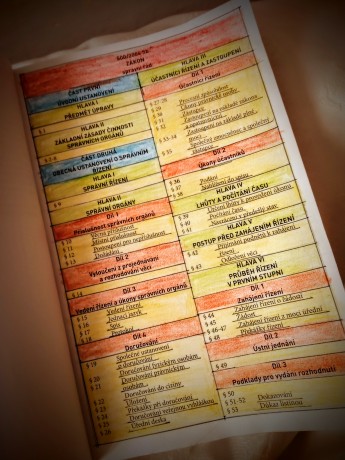 500/2004 Sb.
ZÁKON
správní řád
ČÁST PRVNÍ
ÚVODNÍ USTANOVENÍ
HLAVA I
PŘEDMĚT ÚPRAVY
§ 1
HLAVA II
ZÁKLADNÍ ZÁSADY ČINNOSTI
SPRÁVNÍCH ORGÁNŮ
§ 2-8
ČÁST DRUHÁ
OBECNÁ USTANOVENÍ O SPRÁVNÍM
ŘÍZENÍ
HLAVA I
SPRÁVNÍ ŘÍZENÍ
§ 9
HLAVA II
SPRÁVNÍ ORGÁNY
Díl 1
Příslušnost správních orgánů
§ 10 Věcná příslušnost
§ 11 Místní příslušnost
§ 12 Postoupení pro nepříslušnost
§ 13 Dožádání
Díl 2
Vyloučení z projednávání
a rozhodování věci
§ 14
Díl 3
Vedení řízení a úkony správních orgánů
§ 15 Vedení řízení
§ 16 Jednací jazyk
§ 17 Spis
§ 18 Protokol
Díl 4
Doručování
§ 19 Společné ustanovení
o doručování
§ 20 Doručování fyzickým osobám
§ 21 Doručování právnickým
osobám
§ 22 Doručování do ciziny
§ 23 Uložení
§ 24 Překážky při doručování
§ 25 Doručování veřejnou vyhláškou
§ 26 Úřední deska
HLAVA III
ÚČASTNÍCI ŘÍZENÍ A ZASTOUPENÍ
Díl 1
Účastníci řízení
§ 27-28
§ 29 Procesní způsobilost
§ 30 Úkony právnické osoby
§ 31 Zástupce
§ 32 Zastoupení na základě zákona
a opatrovnictví
§ 33-34 Zastoupení na základě plné
moci
§ 35 Společný zmocněnec a společný
zástupce
Díl 2
Úkony účastníků
§ 37 Podání
§ 38 Nahlížení do spisu
HLAVA IV
LHŮTY A POČÍTÁNÍ ČASU
§ 39 Určení lhůty k provedení úkonu
§ 40 Počítání času
§ 41 Navrácení v předešlý stav
HLAVA V
POSTUP PŘED ZAHÁJENÍM ŘÍZENÍ
§ 42 Přijímání podnětů k zahájení
řízení
§ 43 Odložení věci
HLAVA VI
PRŮBĚH ŘÍZENÍ
V PRVNÍM STUPNI
Díl 1
Zahájení řízení
§ 44 Zahájení řízení o žádosti
§ 45 Žádost
§ 46-47 Zahájení řízení z moci úřední
§ 48 Překážky řízení
Díl 2
Ústní jednání
§ 49
Díl 3
Podklady pro vydání rozhodnutí
§ 50
§ 51-52 Dokazování
§ 53 Důkaz listinou